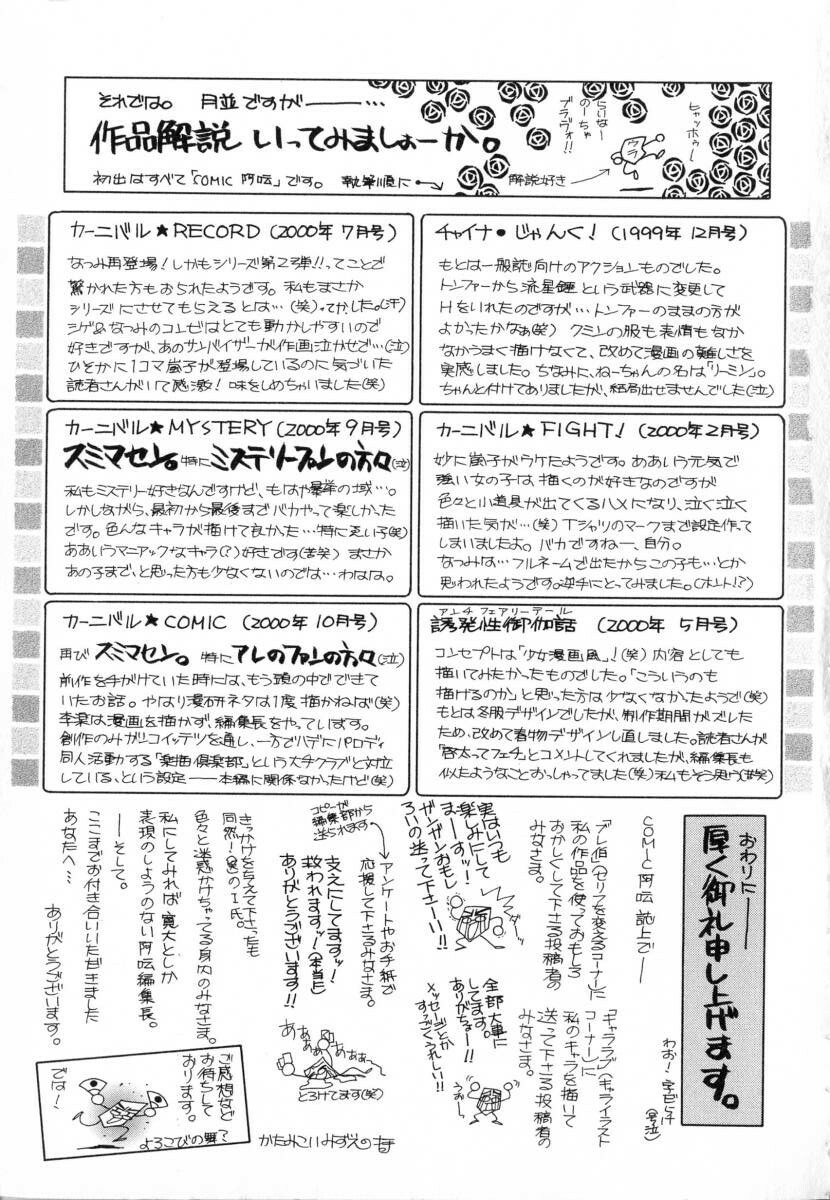 それでは。 月並ですが――…
作品解説 いってみましょーか。
初出はすべて「COMIC 阿吽」です。 執筆順に→
らいなー
のーちゃ
ブラヴォ!!
ヒャッホゥー
ウラ
解説好き→
チャイナ・じゃんく! (1999年 12月号)
もとは一般誌向けのアクションものでした。
トンファーから流星錘という武器に変更して
Hをいれたのですが…トンファーのままの方が
よかったかなぁ(笑) クミンの服も表情もなか
なかうまく描けなくて、改めて漫画の難しさを
実感しました。ちなみに、ねーちゃんの名は「リーミン」。
ちゃんと付けてありましたが、結局出せませんでした(泣)
カーニバル★FIGHT! (2000年2月号)
妙に嵐子がウケたようです。ああいう元気で
強い女の子は描くのが好きなのですが
色々と小道具が出てくるハメになり、泣く泣く
描いた気が…(笑) Tシャツのマークまで設定作って
しまいましたよ。バカですねー、自分。
なつみは…フルネームで出たからこの子も…とか
思われたようです。逆手にとってみました。(ホント!?)
アンチ フェアリーテール
誘発性御伽話 (2000年 5月号)
コンセプトは「少女漫画風」!(笑) 内容としても
描いてみたかったものでした。「こういうのも
描けるのか」と思った方は少なくなかったようで(笑)
もとは冬服デザインでしたが、制作期間がズレた
ため、改めて着物デザインし直しました。読者さんが
「啓太ってフェチ」とコメントしてくれましたが、編集長も
似たようなことおっしゃってました(笑) 私もそう思う(苦笑)
カーニバル★RECORD (2000年 7月号)
なつみ再登場!しかもシリーズ第2弾!!ってことで
驚かれた方もおられたようです。私もまさか
シリーズにさせてもらえるとは…(笑)。てか、した。(汗)
シゲ&なつみのコンビはとても動かしやすいので
好きですが、あのサンバイザーが作画泣かせで…(泣)
ひそかに1コマ嵐子が登場しているのに気づいた
読者さんがいて感激!味をしめちゃいました(笑)
カーニバル★MYSTERY (2000年9月号)
スミマセン。特にミステリーファンの方々(泣)
私もミステリー好きなんですけど、もはや暴挙の域…。
しかしながら、最初から最後までバカやって楽しかった
です。色んなキャラが描けて良かった…特に兎い子(笑)
ああいうマニアックなキャラ(?)好きです(苦笑) まさか
あの子まで、と思った方も少なくないのでは…わはは。
カーニバル★COMIC (2000年 10月号)
再び スミマセン。 特に アレのファンの方々(泣)
前作を手がけていた時には、もう頭の中でできて
いたお話。やはり漫研ネタは1度描かねば(笑)
李梁は漫画を描かず編集長をやっています。
創作のみがコイッテツを通し、一方でハデにパロディ
同人活動する「楽描倶楽部」という大手クラブと対立
している、という設定――本編に関係なかったけど(笑)
おわりに――
厚く御礼申し上げます。
わお!字ビッチ
(号泣)
COMIC阿吽 誌上で――
「アレ伯(セリフを変えるコーナー)に
私の作品を使っておもしろ
おかしくして下さる投稿者の
みなさま。
実はいつも
楽しみにして
まーーすッ!
ガンガンおもし
ろいの送って下さーい!!
「キャララブ」(キャライラスト
コーナー)に
私のキャラを描いて
送って下さる投稿者の
みなさま。
全部大事に
してます。
ありがちょー!!
メッセージとか
すっごくうれしい!!
うおおー
コピーが
編集部から
送られます
アンケートやお手紙で
応援して下さるみなさま。
支えにしてますッ!
救われますッ!(本当に)
ありがとうございます!!
あああ
あぁ
あぁぁぁ
とろけてます(笑)
きっかけを与えて下さったも
同然!(笑)のI氏。
色々と迷惑かけちゃってる身内のみなさま。
私にしてみれば寛大としか
表現のしようのない阿吽編集長。
――そして。
ここまでお付き合いいただきました
あなたへ…
ありがとうございます。
ご感想など
お待ちして
おります。
では!
よろこびの舞?
かたみこいみずえ